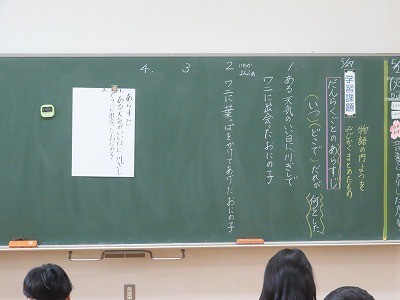 5/27
学習課題
だんらくごとのあらすじ
物語の内ようを
みじかくまとめたもの
(いつ)(どこで)だれが(何をした)
1 ある天気のいい日に川ぎしで
ワニに出会ったおにの子
2
ワニに葉っぱをかけてあげたおにの子
3
4.
あらすじ
ある天気のいい日に川ぎしで
ワニに出会ったおにの子